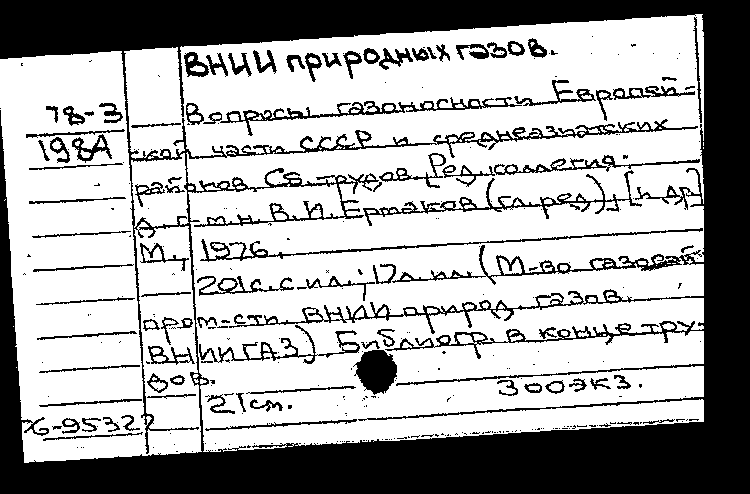 ВНИИ природных газов.
78-3 Вопросы газоносности Европей-
1984 ской части СССР и среднеазиатских
районов. Сб. трудов. [Ред. коллегия:
д. г.-м.н. В. И. Ермаков (гл. ред), [и др]
М., 1976.
201с. с ил.; 17л. ил. (М-во газовой
пром-сти. ВНИИ природ. газов.
ВНИИГАЗ). Библиогр. в конце тру-
дов.
21см. 300экз.
76-95322